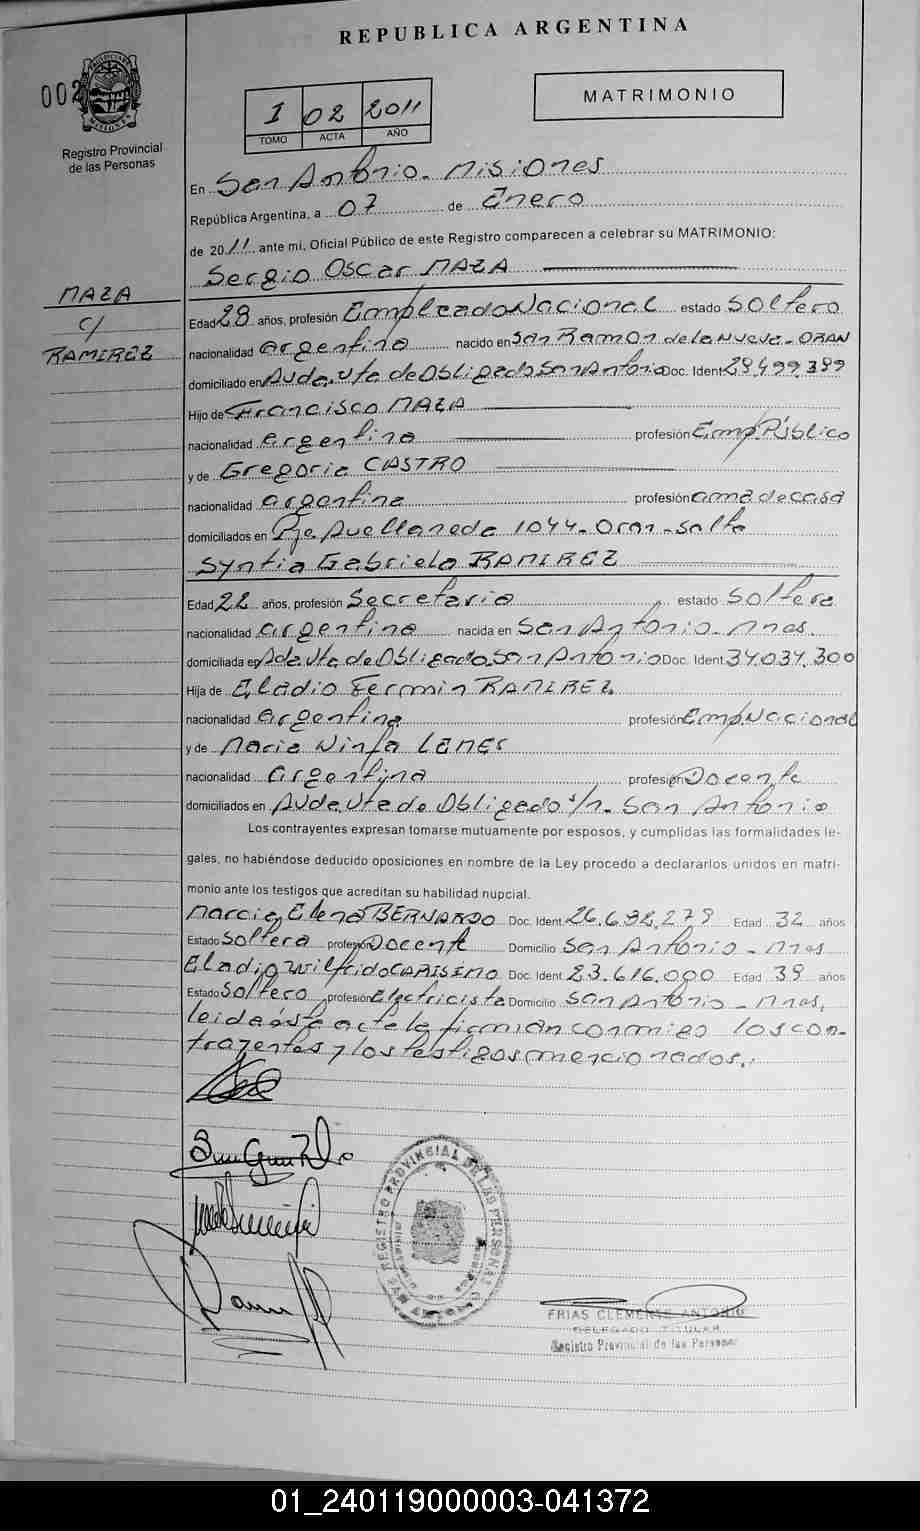 REPUBLICA ARGENTINA
002
Registro Provincial
de las Personas
MATRIMONIO
I 02 2011
TOMO ACTA AÑO
En San Antonio - Misiones
República Argentina, a 07 de Enero
de 2011 ante mi, Oficial Público de este Registro comparecen a celebrar su MATRIMONIO:
Sergio Oscar MAZA
MAZA
C/
RAMIREZ
Edad 28 años, profesión Empleado Nacional estado Soltero
nacionalidad argentino nacido en San Ramon de la Nueva - ORAN
domiciliado en Avda. Vta de Obligado San Antonio Doc. Ident 28.499.389
Hijo de Francisco MAZA
nacionalidad argentino profesión Emp. Público
y de Gregoria CASTRO
nacionalidad argentina profesión ama de casa
domiciliados en Pje Avellaneda 1044 - Oran - Salta
Syntia Gabriela RAMIREZ
Edad 22 años, profesión Secretaria estado Soltera
nacionalidad argentina nacida en San Antonio - Mnes.
domiciliada en Avda Vta de Obligado San Antonio Doc. Ident 34.034.300
Hija de Eladio Fermin RAMIREZ
nacionalidad argentina profesión Emp Nacional
y de Maria Ninfa
nacionalidad argentina profesión Docente
domiciliados en Avda Vta de Obligado s/n - San Antonio
Los contrayentes expresan tomarse mutuamente por esposos, y cumplidas las formalidades le-
gales, no habiéndose deducido oposiciones en nombre de la Ley procedo a declararlos unidos en matri-
monio ante los testigos que acreditan su habilidad nupcial.
Marcia Elena BERNARDO Doc. Ident 26.692.279 Edad 32 años
Estado Soltera profesión Docente Domicilio San Antonio - Mnes
Eladio Wilfrido CARISIMO Doc. Ident 23.616.000 Edad 39 años
Estado Soltero profesión Electricista Domicilio San Antonio - Mnes,
leida ésta acta la firman conmigo los con-
trayentes y los testigos mencionados.
REGISTRO PROVINCIAL DE LAS PERSONAS
FRIAS CLEMENTE ANTONIO
DELEGADO TITULAR
Registro Provincial de las Personas
01_240119000003-041372